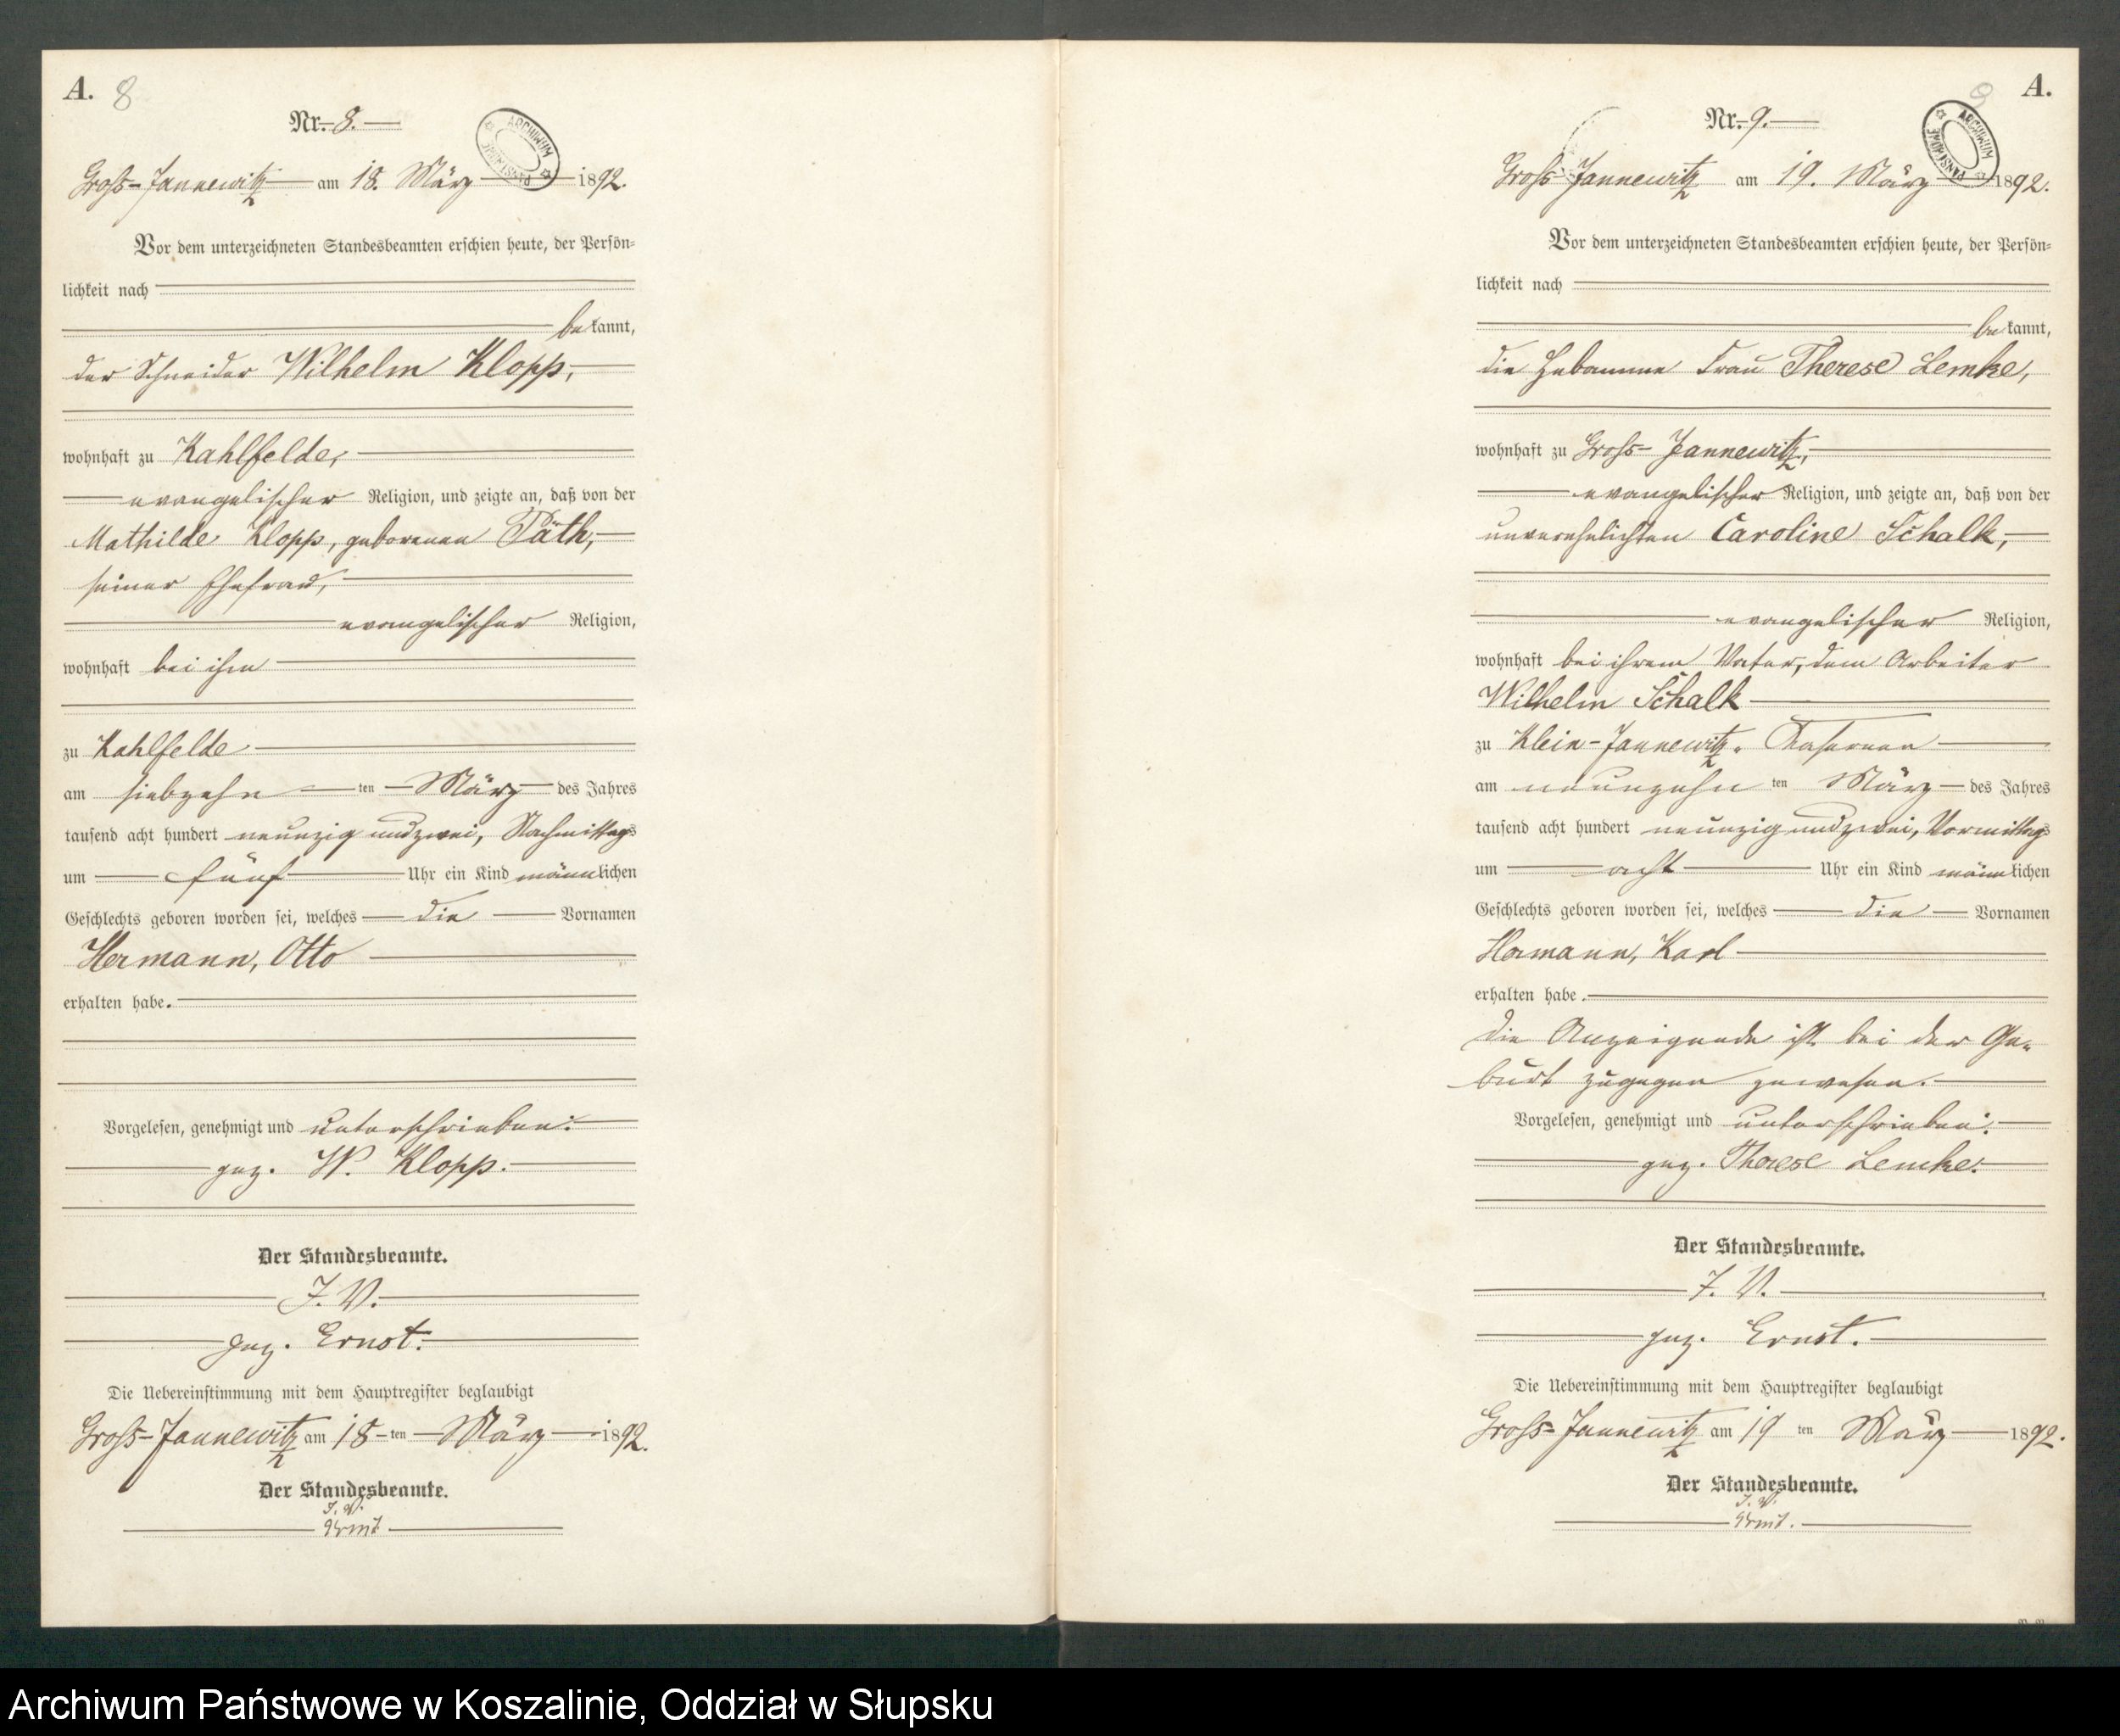 A. 8
Nr. 8.
ARCHIWUM PAŃSTWOWE
Gross-Jannewitz am 18. März 1892.
Vor dem unterzeichneten Standesbeamten erschien heute, der Persön-
lichkeit nach
bekannt,
der Schneider Wilhelm Klopp,
wohnhaft zu Kahlfelde,
evangelischer Religion, und zeigte an, daß von der
Mathilde Klopp, geborenen Päth,
seiner Ehefrau,
evangelischer Religion,
wohnhaft bei ihm
zu Kahlfelde
am siebzehn ten März des Jahres
tausend acht hundert neunzig und zwei, Nachmittags
um fünf Uhr ein Kind männlichen
Geschlechts geboren worden sei, welches die Vornamen
Hermann, Otto
erhalten habe.
Vorgelesen, genehmigt und unterschrieben:
gez. W. Klopp.
Der Standesbeamte.
J. V.
gez. Ernst.
Die Uebereinstimmung mit dem Hauptregister beglaubigt
Gross-Jannewitz am 18 ten März 1892.
Der Standesbeamte.
J. V.
Ernst
9 A.
Nr. 9.
ARCHIWUM PAŃSTWOWE
Gross-Jannewitz am 19. März 1892.
Vor dem unterzeichneten Standesbeamten erschien heute, der Persön-
lichkeit nach
bekannt,
die Hebamme Frau Therese Lemke,
wohnhaft zu Gross-Jannewitz,
evangelischer Religion, und zeigte an, daß von der
unverehelichten Caroline Schalk,
evangelischer Religion,
wohnhaft bei ihrem Vater, dem Arbeiter
Wilhelm Schalk
zu Klein-Jannewitz, Kasernen
am neunzehn ten März des Jahres
tausend acht hundert neunzig und zwei, Vormittags
um acht Uhr ein Kind männlichen
Geschlechts geboren worden sei, welches die Vornamen
Hermann, Karl
erhalten habe.
Die Anzeigende ist bei der Ge-
burt zugegen gewesen.
Vorgelesen, genehmigt und unterschrieben:
gez. Therese Lemke.
Der Standesbeamte.
J. V.
gez. Ernst.
Die Uebereinstimmung mit dem Hauptregister beglaubigt
Gross-Jannewitz am 19 ten März 1892.
Der Standesbeamte.
J. V.
Ernst.
Archiwum Państwowe w Koszalinie, Oddział w Słupsku